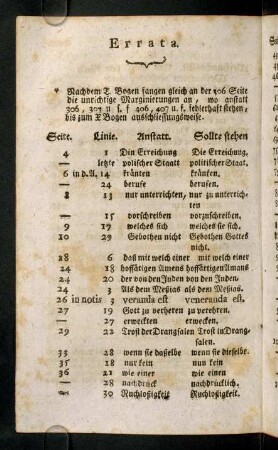 Errata.
* Nachdem T. Bogen fangen gleich an der 506 Seite
die unrichtige Marginierungen an, wo anstatt
306, 307 u. s. f 406, 407 u. f. fehlerhaft stehen,
bis zum X Bogen ausschliessungsweise.
Seite. Linie. Anstatt. Sollte stehen
4 1 Din Erreichung, Die Erreichung,
— letzte politscher Staatt politischer Staat.
6 in d. A, 14 kränten kränken.
— 24 berufe berufen.
8 13 nur unterrichten, nur zu unterrich-
ten
— 15 vorschreiben vorzuschreiben.
9 17 welches sich welches sie sich.
10 29 Gebothen nicht Gebothen Gottes
nicht.
18 6 daß mit welch einer mit welch einer
24 18 hoffärtigen Amens hoffärtigen Amans
24 20 der von den Juden von den Juden.
24 3 Als dem Meßias als den Meßias.
26 in notis 3 veranda est veneranda est.
27 19 Gott zu verheren zu verehren.
— 27 erweckten erwecken.
29 22 Trost der Drangsalen Trost in Drang-
salen.
33 28 wenn sie daßelbe wenn sie dieselbe.
35 18 nur kein nun kein
36 21 wie einer wie einen
— 28 nachdruck nachdrücklich.
— 30 Ruchloßigkeit Ruchlosigkeit.